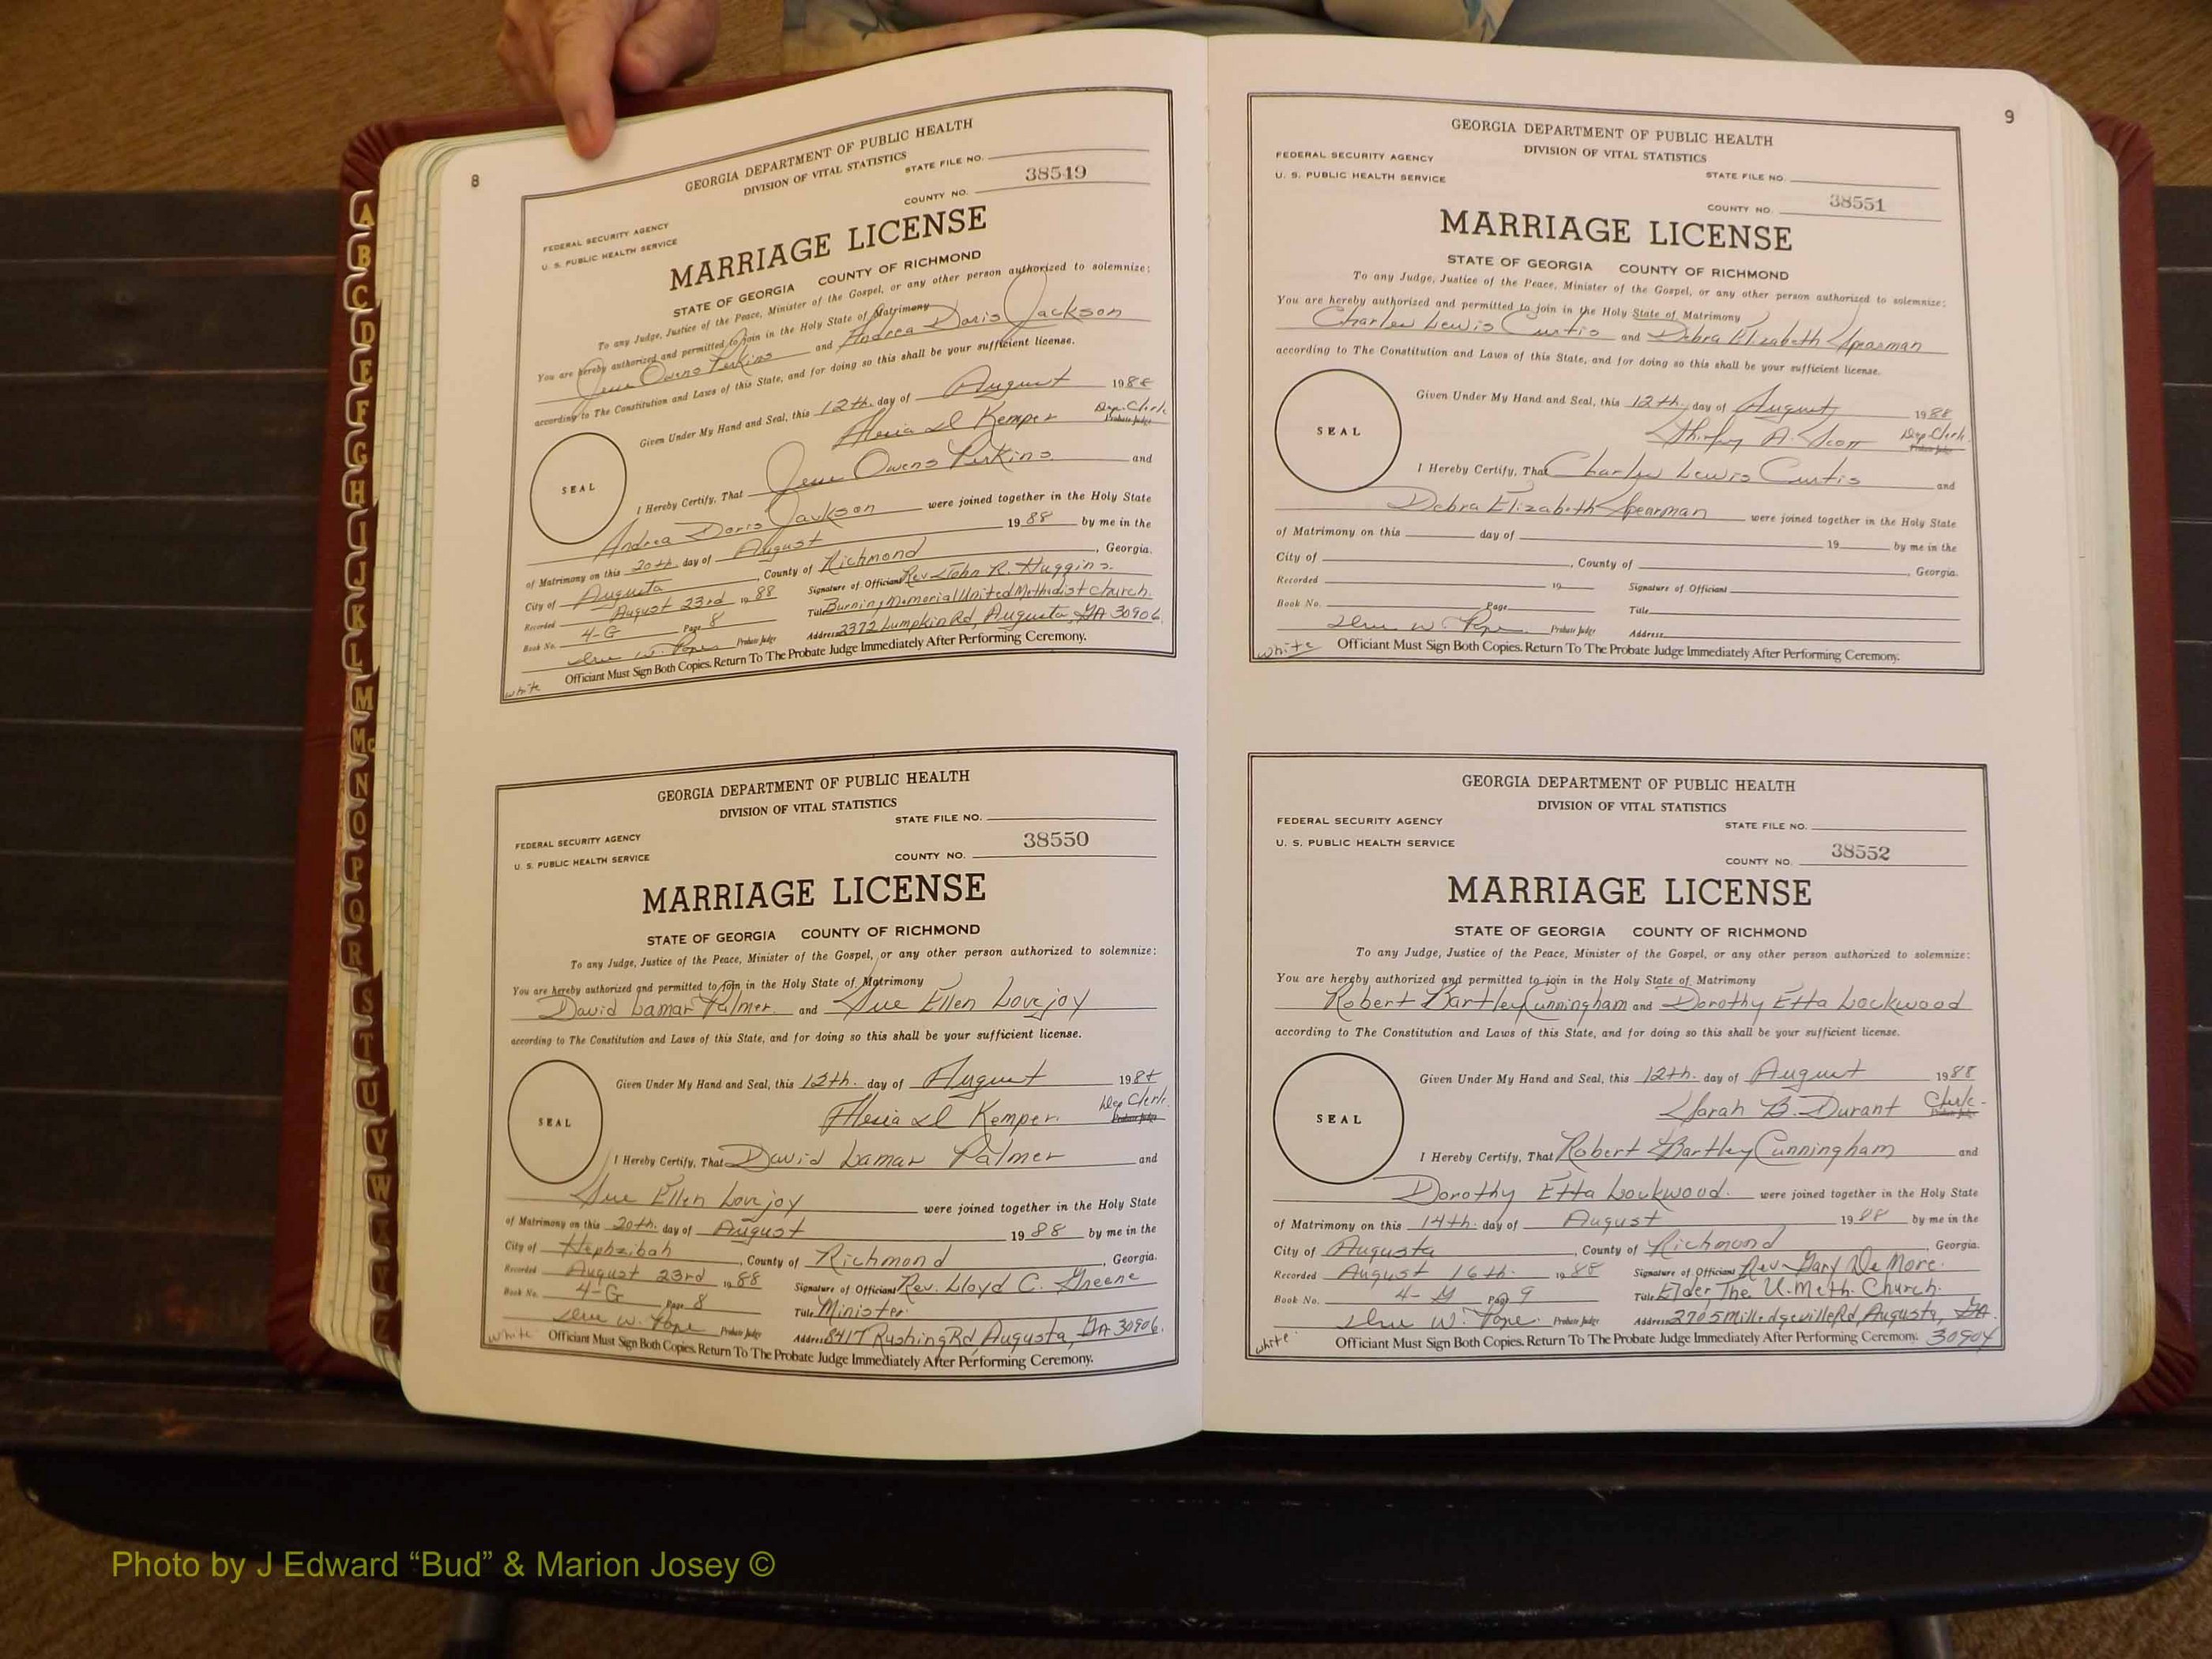 8
GEORGIA DEPARTMENT OF PUBLIC HEALTH
DIVISION OF VITAL STATISTICS
STATE FILE NO.
38549
COUNTY NO.
FEDERAL SECURITY AGENCY
U. S. PUBLIC HEALTH SERVICE
MARRIAGE LICENSE
STATE OF GEORGIA COUNTY OF RICHMOND
To any Judge, Justice of the Peace, Minister of the Gospel, or any other person authorized to solemnize:
You are hereby authorized and permitted to join in the Holy State of Matrimony
Jesse Owens Perkins and Andrea Doris Jackson
according to The Constitution and Laws of this State, and for doing so this shall be your sufficient license.
Given Under My Hand and Seal, this 12th. day of August 1988
Alesia D Kemper Dep. Clerk
Probate Judge
SEAL
I Hereby Certify, That Jesse Owens Perkins and
Andrea Doris Jackson were joined together in the Holy State
of Matrimony on this 20th. day of August 1988 by me in the
City of Augusta, County of Richmond, Georgia.
Recorded August 23rd 1988 Signature of Officiant Rev John R. Huggins.
Book No. 4-G Page 8 Title Burning Memorial United Methodist Church.
W. Pope Probate Judge Address 2372 Lumpkin Rd, Augusta, GA 30906.
white Officiant Must Sign Both Copies. Return To The Probate Judge Immediately After Performing Ceremony.
GEORGIA DEPARTMENT OF PUBLIC HEALTH
DIVISION OF VITAL STATISTICS
STATE FILE NO.
FEDERAL SECURITY AGENCY
38550
U. S. PUBLIC HEALTH SERVICE
COUNTY NO.
MARRIAGE LICENSE
STATE OF GEORGIA COUNTY OF RICHMOND
To any Judge, Justice of the Peace, Minister of the Gospel, or any other person authorized to solemnize:
You are hereby authorized and permitted to join in the Holy State of Matrimony
David Lamar Palmer and Sue Ellen Lovejoy
according to The Constitution and Laws of this State, and for doing so this shall be your sufficient license.
Given Under My Hand and Seal, this 12th. day of August 1988
Alesia D Kemper. Dep Clerk.
Probate Judge
SEAL
I Hereby Certify, That David Lamar Palmer and
Sue Ellen Lovejoy were joined together in the Holy State
of Matrimony on this 20th. day of August 1988 by me in the
City of Hephzibah, County of Richmond, Georgia.
Recorded August 23rd 1988 Signature of Officiant Rev. Lloyd C. Greene
Book No. 4-G Page 8 Title Minister
W. Pope Probate Judge Address 8417 Rushing Rd, Augusta, GA 30906.
white Officiant Must Sign Both Copies. Return To The Probate Judge Immediately After Performing Ceremony.
9
GEORGIA DEPARTMENT OF PUBLIC HEALTH
DIVISION OF VITAL STATISTICS
FEDERAL SECURITY AGENCY
U. S. PUBLIC HEALTH SERVICE
STATE FILE NO.
38551
COUNTY NO.
MARRIAGE LICENSE
STATE OF GEORGIA COUNTY OF RICHMOND
To any Judge, Justice of the Peace, Minister of the Gospel, or any other person authorized to solemnize:
You are hereby authorized and permitted to join in the Holy State of Matrimony
Charles Lewis Curtis and Debra Elizabeth Spearman
according to The Constitution and Laws of this State, and for doing so this shall be your sufficient license.
Given Under My Hand and Seal, this 12th. day of August, 1988
Shirley A. Scott Dep Clerk.
Probate Judge
SEAL
I Hereby Certify, That Charles Lewis Curtis and
Debra Elizabeth Spearman were joined together in the Holy State
of Matrimony on this day of 19 by me in the
City of , County of , Georgia.
Recorded 19 Signature of Officiant
Book No. Page Title
W. Pope Probate Judge Address
white Officiant Must Sign Both Copies. Return To The Probate Judge Immediately After Performing Ceremony.
GEORGIA DEPARTMENT OF PUBLIC HEALTH
DIVISION OF VITAL STATISTICS
FEDERAL SECURITY AGENCY
STATE FILE NO.
U. S. PUBLIC HEALTH SERVICE
38552
COUNTY NO.
MARRIAGE LICENSE
STATE OF GEORGIA COUNTY OF RICHMOND
To any Judge, Justice of the Peace, Minister of the Gospel, or any other person authorized to solemnize:
You are hereby authorized and permitted to join in the Holy State of Matrimony
Robert Bartley Cunningham and Dorothy Etta Lockwood
according to The Constitution and Laws of this State, and for doing so this shall be your sufficient license.
Given Under My Hand and Seal, this 12th. day of August 1988
Sarah B. Durant Clerk
Probate Judge
SEAL
I Hereby Certify, That Robert Bartley Cunningham and
Dorothy Etta Lockwood. were joined together in the Holy State
of Matrimony on this 14th. day of August 1988 by me in the
City of Augusta, County of Richmond, Georgia.
Recorded August 16th. 1988 Signature of Officiant Rev. Gary De More.
Book No. 4-G Page 9 Title Elder The U. Meth. Church.
W. Pope. Probate Judge Address 2705 Milledgeville Rd, Augusta, GA.
white Officiant Must Sign Both Copies. Return To The Probate Judge Immediately After Performing Ceremony. 30904
A
B
C
D
E
F
G
H
I
J
K
L
M
Mc
N
O
P
Q
R
S
T
U
V
W
X
Y
Z
Photo by J Edward “Bud” & Marion Josey ©